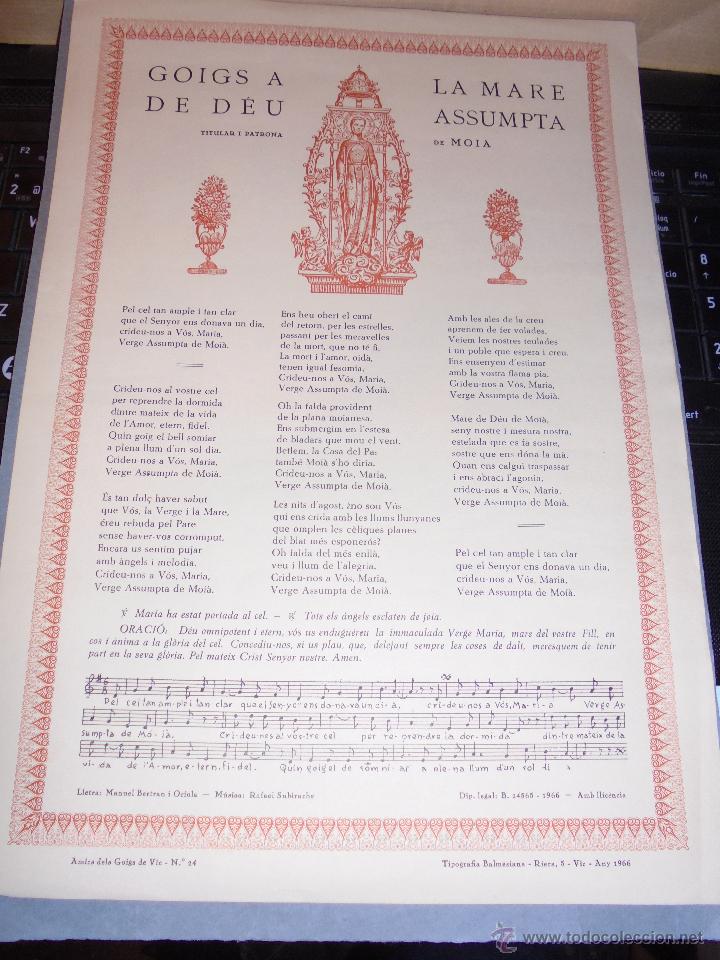 GOIGS A LA MARE
DE DÉU ASSUMPTA
TITULAR I PATRONA DE MOIA
Pel cel tan ample i tan clar
que el Senyor ens donava un dia,
crideu-nos a Vós, Maria,
Verge Assumpta de Moià.
Crideu-nos al vostre cel
per reprendre la dormida
dintre mateix de la vida
de l'Amor, etern, fidel.
Quin goig el bell somiar
a plena llum d'un sol dia.
Crideu-nos a Vós, Maria,
Verge Assumpta de Moià.
És tan dolç haver sabut
que Vós, la Verge i la Mare,
éreu rebuda pel Pare
sense haver-vos corromput.
Encara us sentim pujar
amb àngels i melodia.
Crideu-nos a Vós, Maria,
Verge Assumpta de Moià.
Ens heu obert el camí
del retorn, per les estrelles,
passant per les meravelles
de la mort, que no té fi.
La mort i l'amor, oidà,
tenen igual fesomia,
Crideu-nos a Vós, Maria,
Verge Assumpta de Moià.
Oh la falda provident
de la plana moianesa.
Ens submergim en l'estesa
de bladars que mou el vent.
Betlem, la Casa del Pa:
també Moià s'ho diria.
Crideu-nos a Vós, Maria,
Verge Assumpta de Moià.
Les nits d'agost, ¿no sou Vós
qui ens crida amb les llums llunyanes
que omplen les cèliques planes
del blat més esponerós?
Oh falda del més enllà,
veu i llum de l'alegria.
Crideu-nos a Vós, Maria,
Verge Assumpta de Moià.
Amb les ales de la creu
aprenem de fer volades.
Veiem les nostres teulades
i un poble que espera i creu.
Ens ensenyen d'estimar
amb la vostra flama pia.
Crideu-nos a Vós, Maria,
Verge Assumpta de Moià.
Mare de Déu de Moià,
seny nostre i mesura nostra,
estelada que es fa sostre,
sostre que ens dóna la mà.
Quan ens calgui traspassar
i ens abraci l'agonia,
crideu-nos a Vós, Maria,
Verge Assumpta de Moià.
Pel cel tan ample i tan clar
que el Senyor ens donava un dia,
crideu-nos a Vós, Maria,
Verge Assumpta de Moià.
℣ Maria ha estat portada al cel. — ℟ Tots els àngels esclaten de joia.
ORACIÓ: Déu omnipotent i etern, vós us enduguéreu la immaculada Verge Maria, mare del vostre Fill, en
cos i ànima a la glòria del cel. Concediu-nos, si us plau, que, delejant sempre les coses de dalt, meresquem de tenir
part en la seva glòria. Pel mateix Crist Senyor nostre. Amen.
Pel cel tan am-ple i tan clar que el Sen-yor ens do-na-va un di-a, cri-deu-nos a Vós, Ma-ri-a Verge As-
sump-ta de Mo-ià. Cri-deu-nes al vos-tre cel per re-pren-dre la dor-mi-da din-tre mateix de la
vi-da de l'A-mor, e-tern, fi-del. Quin goig el de som-niar a ple-na llum d'un sol di
Lletra: Manuel Bertran i Oriola — Música: Rafael Subirachs
Dip. legal: B. 24565 - 1966 — Amb llicència
Amics dels Goigs de Vic - N.º 24
Tipografia Balmesiana - Riera, 5 - Vic - Any 1966
F2
2
W
Z
Fin
8
5
2
todocoleccion
www.todocoleccion.net